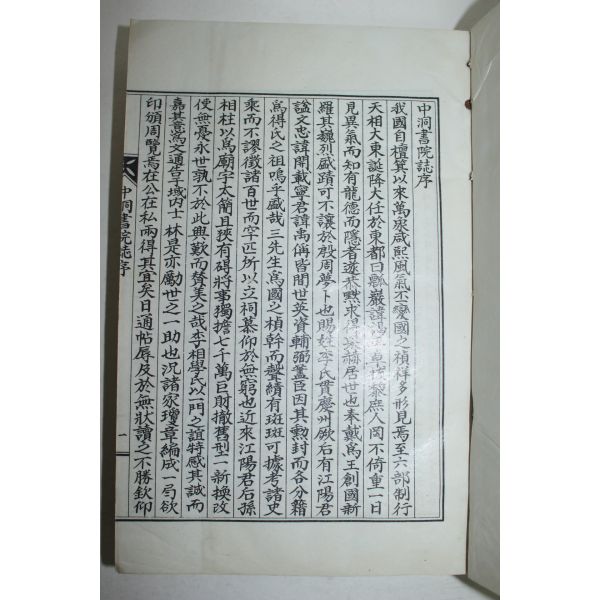 中洞書院誌序
我國自檀箕以來萬泉咸熙風氣丕變國之禎祥多形見焉至六部制行
天相大東誕降大任於東都曰瓢巖諱謁平黎庶人罔不倚重一日
見異氣而知有龍德而隱者遂恭默求得赫居世也奉戴爲王創國新
羅其巍烈盛蹟可不讓於殷周夢卜也賜姓李氏貫慶州厥后有江陽君
諡文忠諱開載寧君諱禹偁皆間世英資輔弼藎臣因其勳封而各分籍
爲得氏之祖嗚乎盛哉三先生爲國之楨幹而聲績有班班可據考諸史
乘而不謬徵諸百世而罕匹所以立祠慕仰於無窮也近來江陽君后孫
相柱以爲廟宇太簡且狹有碍將事獨擔七千萬巨財撤舊型一新換改
使無憂永世孰不於此興歎而賛美之哉李相學氏以一門之誼特感其誠而
嘉其意爲文通告域內士林是亦勵世之一助也況諸家瓊章編成一局欲
印頒周覽焉在公在私兩得其宜矣日通帖辱及於無狀讀之不勝欽仰
中洞書院誌序
一